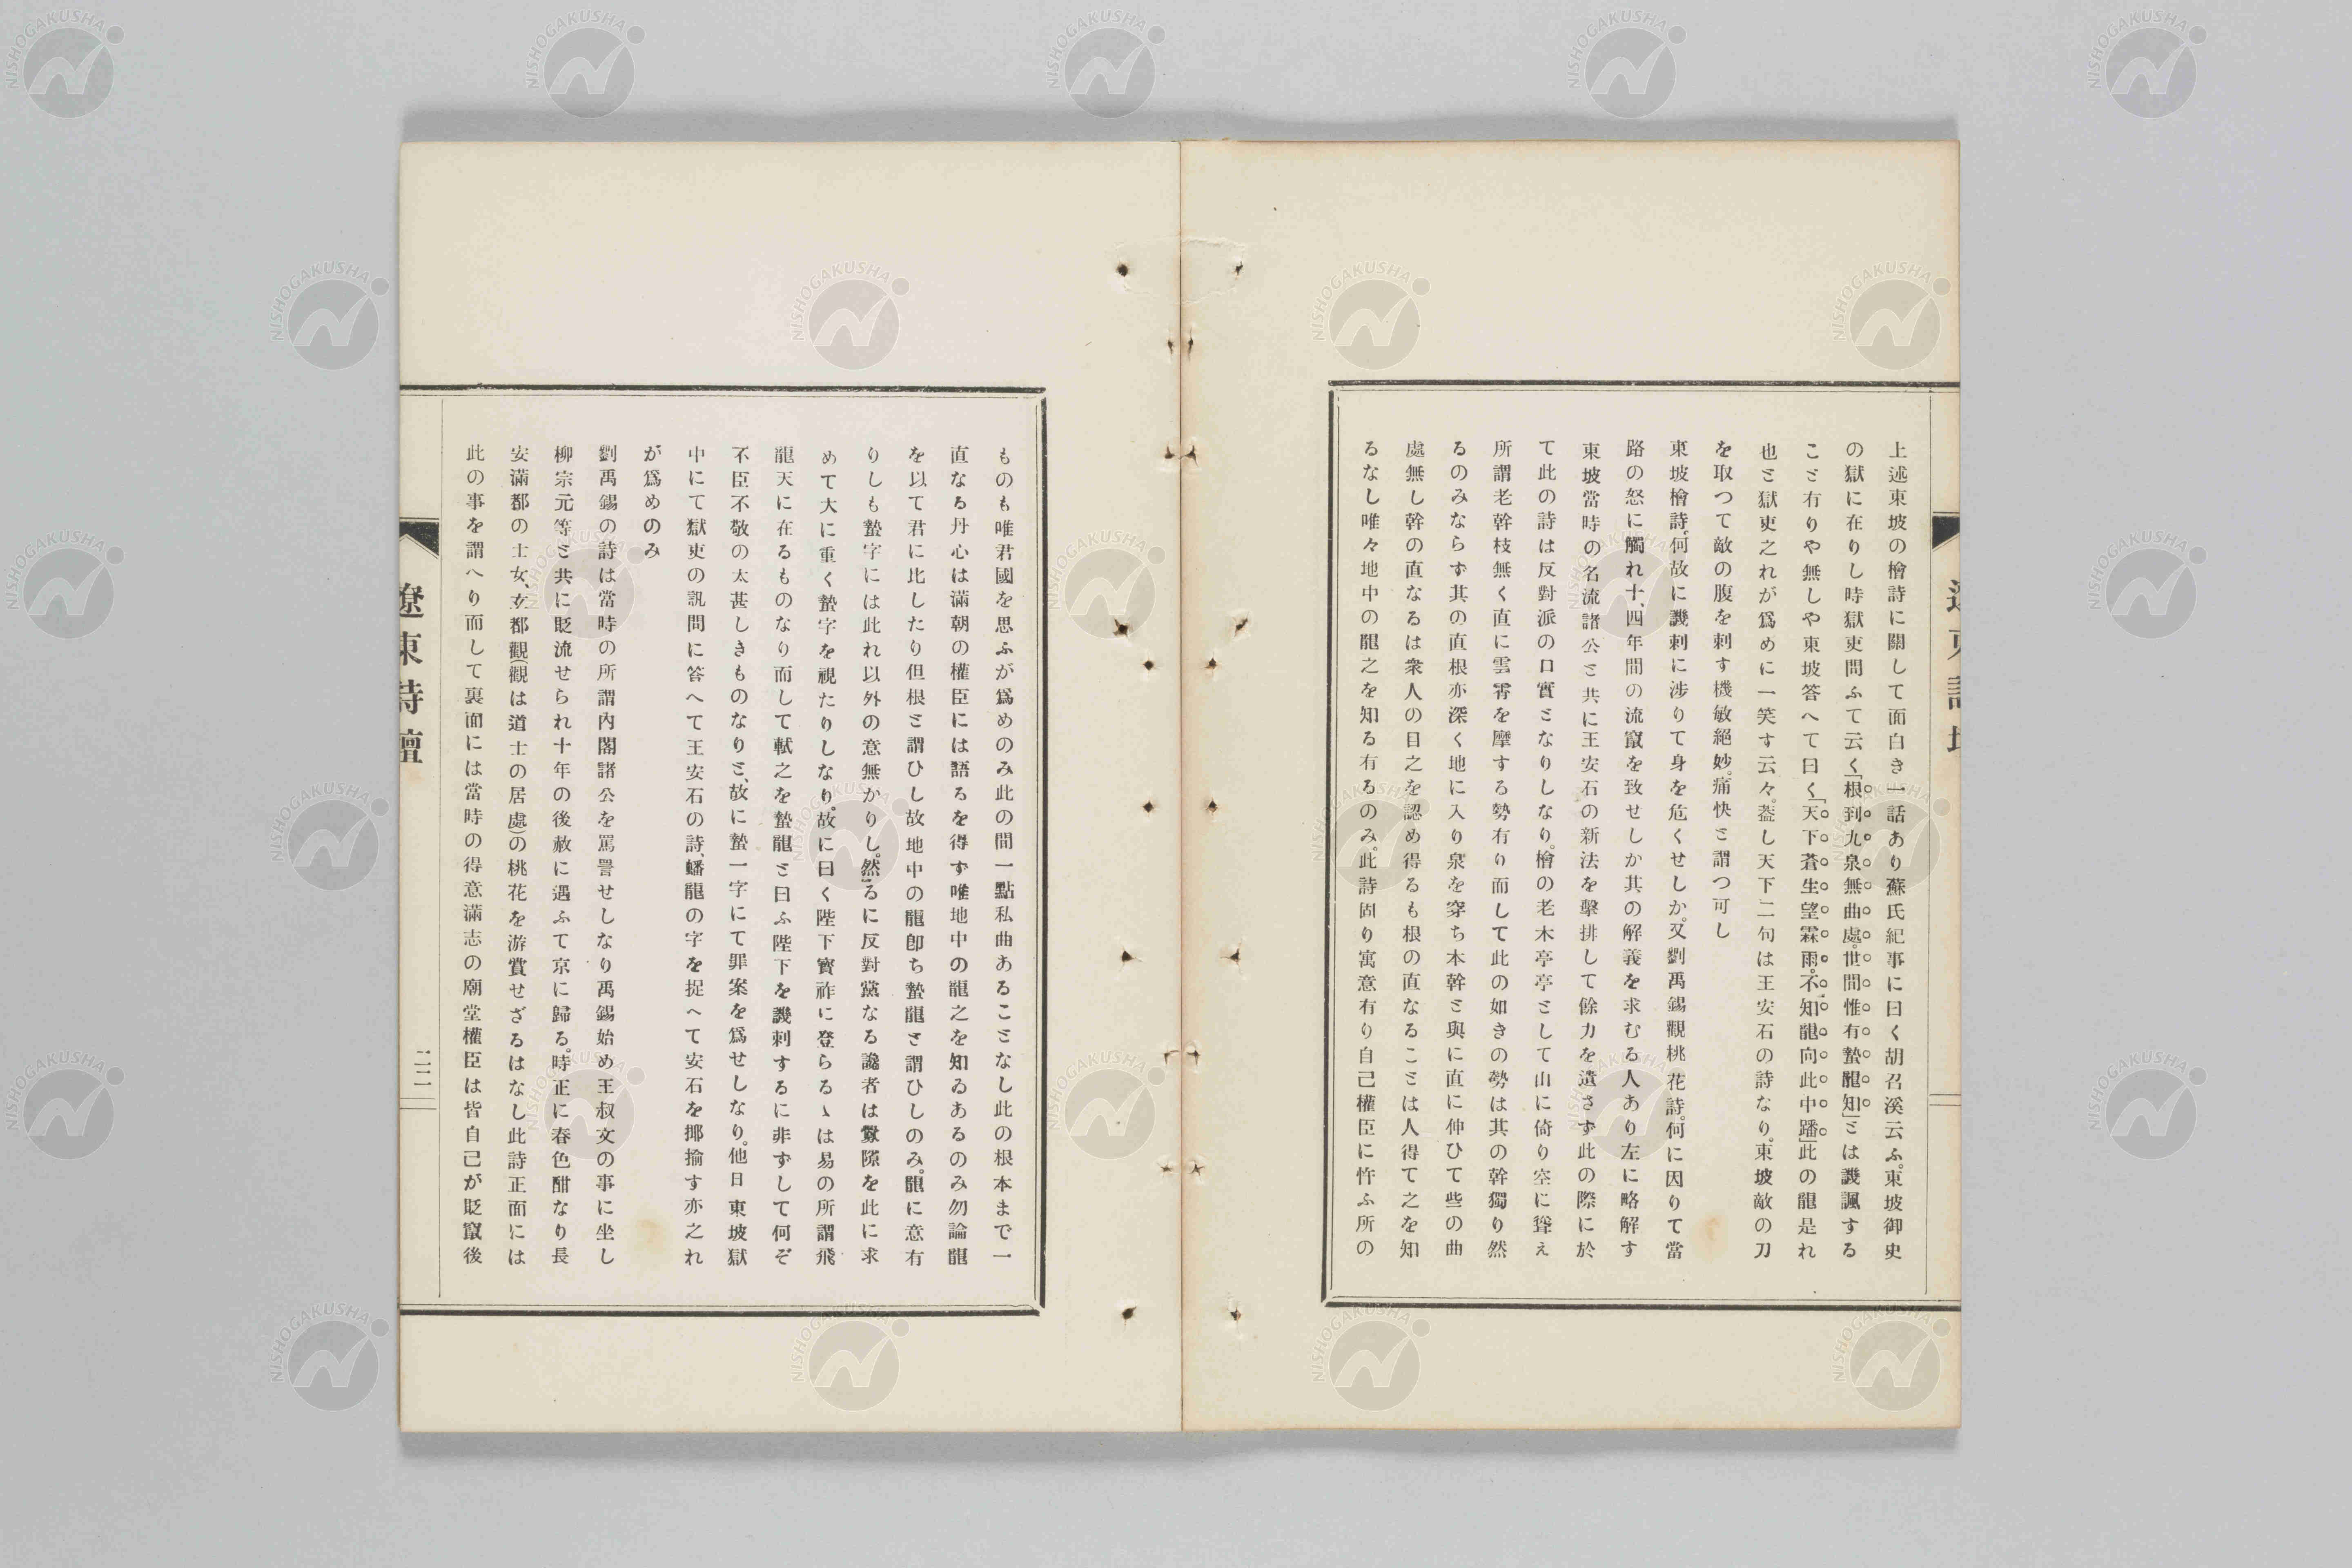 上述東坡の檜詩に關して面白き一話あり蘇氏紀事に曰く胡召溪云ふ。東坡御史
の獄に在りし時獄吏問ふて云く「根到九泉無曲處。世間惟有蟄龍知」とは譏諷する
こと有りや無しや東坡答へて曰く「天下蒼生望霖雨。不知龍向此中蹯」此の龍是れ
也と獄吏之れが爲めに一笑す云々。蓋し天下二句は王安石の詩なり。東坡敵の刀
を取つて敵の腹を刺す機敏絕妙。痛快と謂つ可し
東坡檜詩。何故に譏刺に涉りて身を危くせしか。又劉禹錫觀桃花詩。何に因りて當
路の怒に觸れ十、四年間の流竄を致せしか其の解義を求むる人あり左に略解す
東坡當時の名流諸公と共に王安石の新法を擊排して餘力を遺さず此の際に於
て此の詩は反對派の口實となりしなり。檜の老木亭亭として山に倚り空に聳え
所謂老幹枝無く直に雲霄を摩する勢有り而して此の如きの勢は其の幹獨り然
るのみならず其の直根亦深く地に入り泉を穿ち本幹と與に直に伸ひて些の曲
處無し幹の直なるは衆人の目之を認め得るも根の直なることは人得て之を知
るなし唯々地中の龍之を知る有るのみ。此詩固り寓意有り自己權臣に忤ふ所の
ものも唯君國を思ふが爲めのみ此の間一點私曲あることなし此の根本まで一
直なる丹心は滿朝の權臣には語るを得ず唯地中の龍之を知ゐあるのみ勿論龍
を以て君に比したり但根と謂ひし故地中の龍卽ち蟄龍と謂ひしのみ。龍に意有
りしも蟄字には此れ以外の意無かりし。然るに反對黨なる讒者は釁隙を此に求
めて大に重く蟄字を視たりしなり。故に曰く陛下寳祚に登らるゝは易の所謂飛
龍天に在るものなり而して軾之を蟄龍と曰ふ陛下を譏刺するに非ずして何ぞ
不臣不敬の太甚しきものなりと、故に蟄一字にて罪案を爲せしなり。他日東坡獄
中にて獄吏の訊問に答へて王安石の詩、蟠龍の字を捉へて安石を揶揄す亦之れ
が爲めのみ
劉禹錫の詩は當時の所謂內閣諸公を罵詈せしなり禹錫始め王叔文の事に坐し
柳宗元等と共に貶流せられ十年の後赦に遇ふて京に歸る。時正に春色酣なり長
安滿都の士女、玄都觀(觀は道士の居處)の桃花を游賞せざるはなし此詩正面には
此の事を謂へり而して裏面には當時の得意滿志の廟堂權臣は皆自己が貶竄後
遼東詩壇
二二